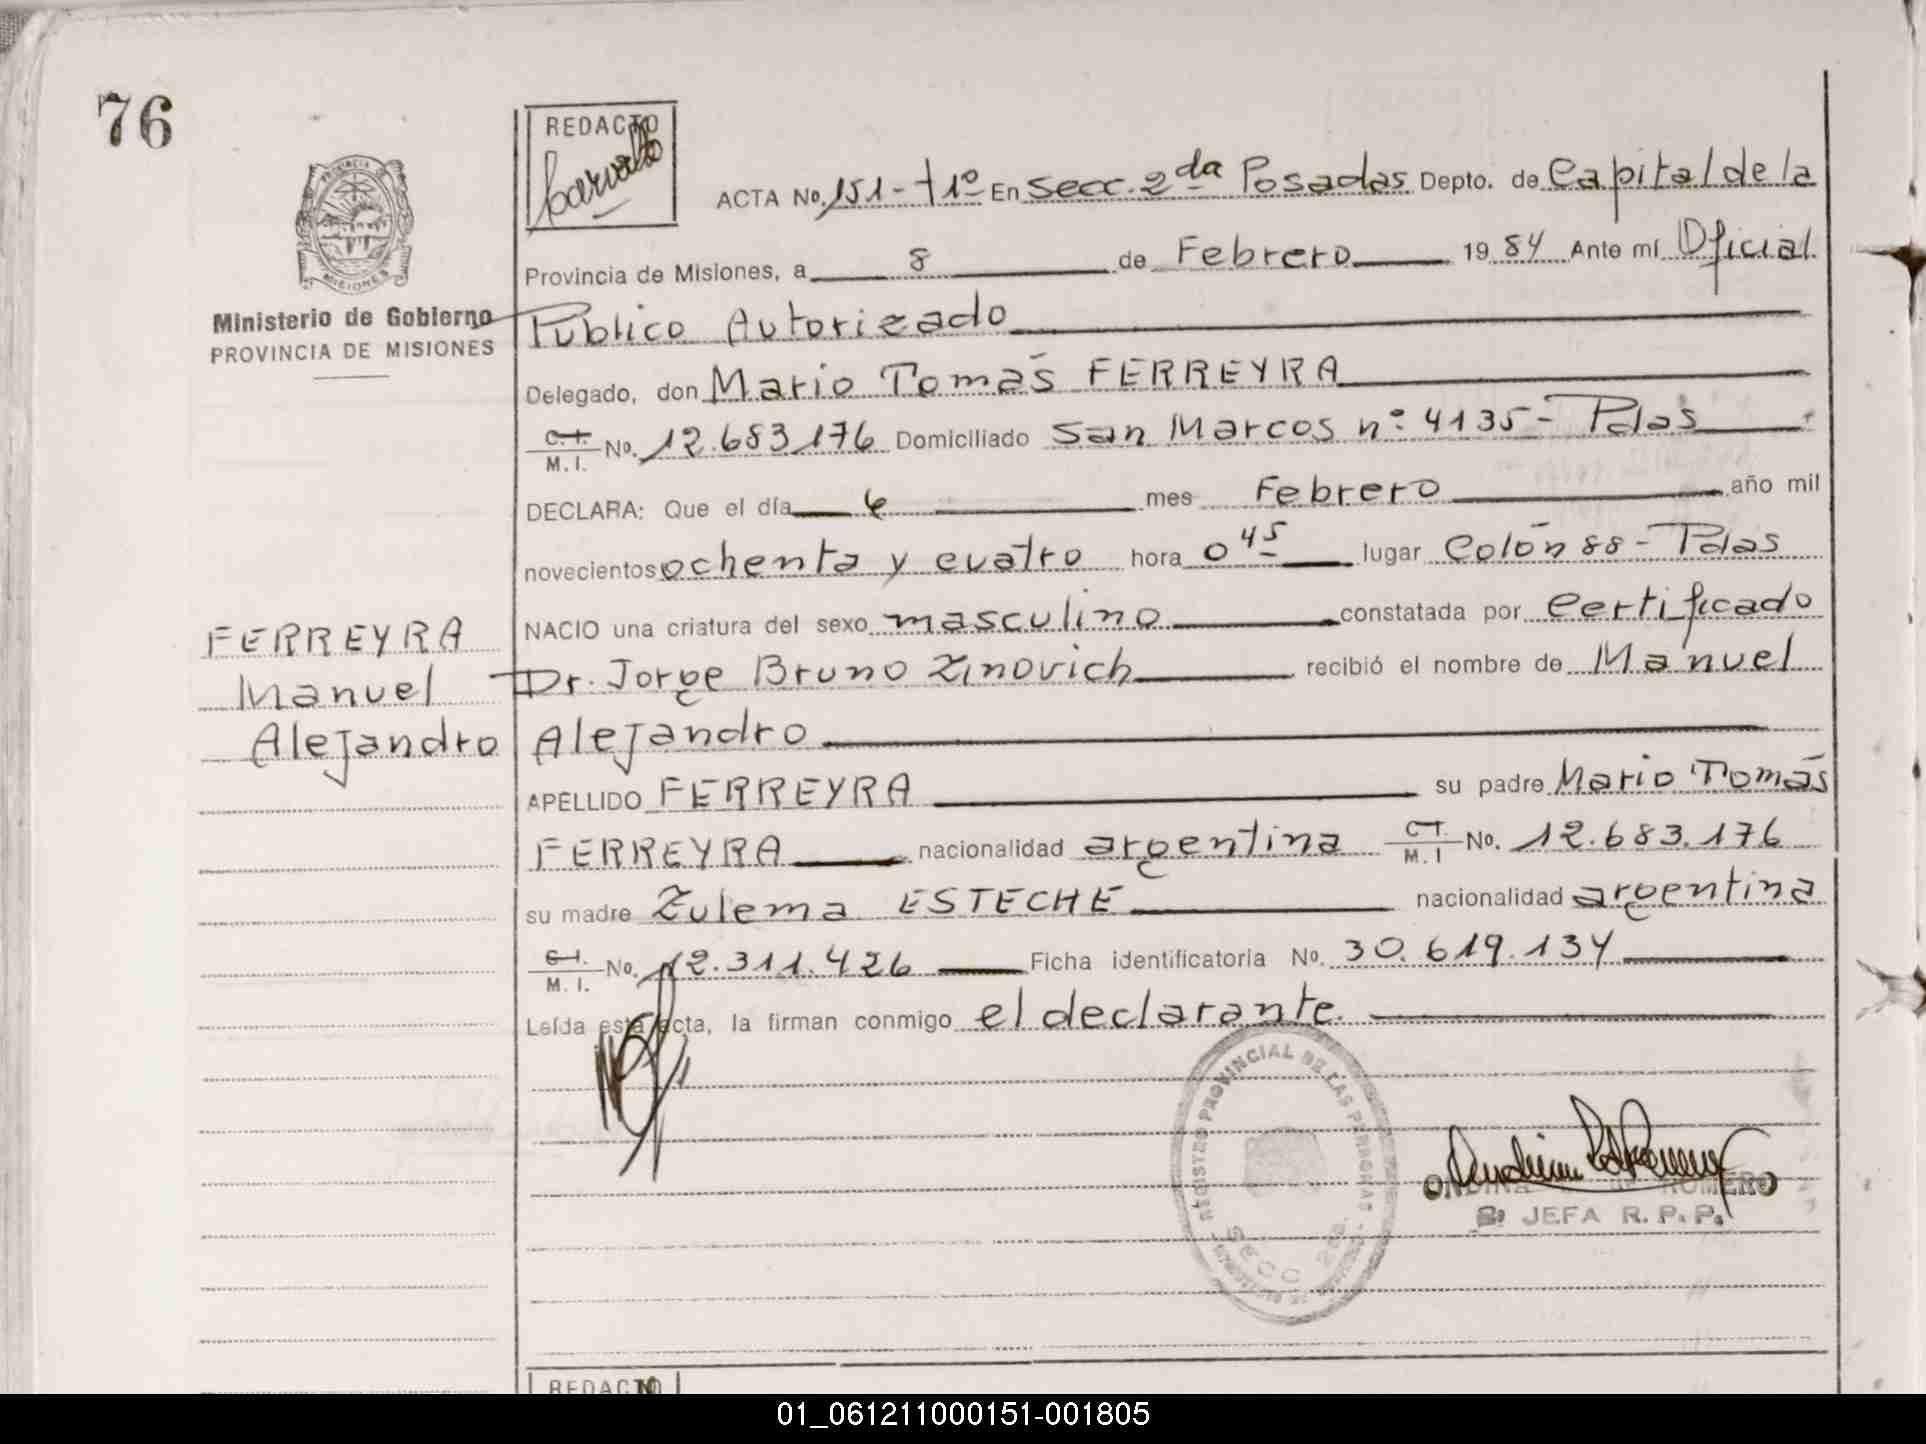 76
REDACTO
PROVINCIA
MISIONES
Ministerio de Gobierno
PROVINCIA DE MISIONES
ACTA No. 151-T1º En Secc. 2da Posadas Depto. de Capital de la
Provincia de Misiones, a 8 de Febrero 1984 Ante mí Oficial
Publico Autorizado
Delegado, don Mario Tomás FERREYRA
C.I. M.I. No. 12.683.176 Domiciliado San Marcos nº 4135 - Pdas
DECLARA: Que el día 6 mes Febrero año mil
novecientos ochenta y cuatro hora 0 45 lugar Colón 88 - Pdas
NACIO una criatura del sexo masculino constatada por Certificado
Dr. Jorge Bruno Zinovich recibió el nombre de Manuel
Alejandro
FERREYRA
Manuel
Alejandro
APELLIDO FERREYRA su padre Mario Tomás
FERREYRA nacionalidad argentina C.I. M.I No. 12.683.176
su madre Zulema ESTECHE nacionalidad argentina
C.I. M.I. No. 12.311.426 Ficha identificatoria No. 30.619.134
Leída esta acta, la firman conmigo el declarante.
REGISTRO PROVINCIAL DE LAS PERSONAS
SECC 2da.
ONDINA ROMERO
JEFA R. P. P.
REDACTO
01_061211000151-001805